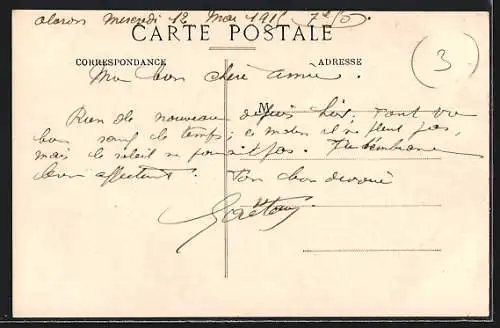 oloron Mercredi 12 Mai 191
CARTE POSTALE
CORRESPONDANCE
ADRESSE
3
Ma bon chère amie.
M
Rien de nouveau depuis hier; Tout va
bon sauf le temps; ce matin il ne pleut pas,
mais le soleil ne parait pas. Je t'embrasse
bien affectueus.t Ton bien dévoué
Gaëtan.